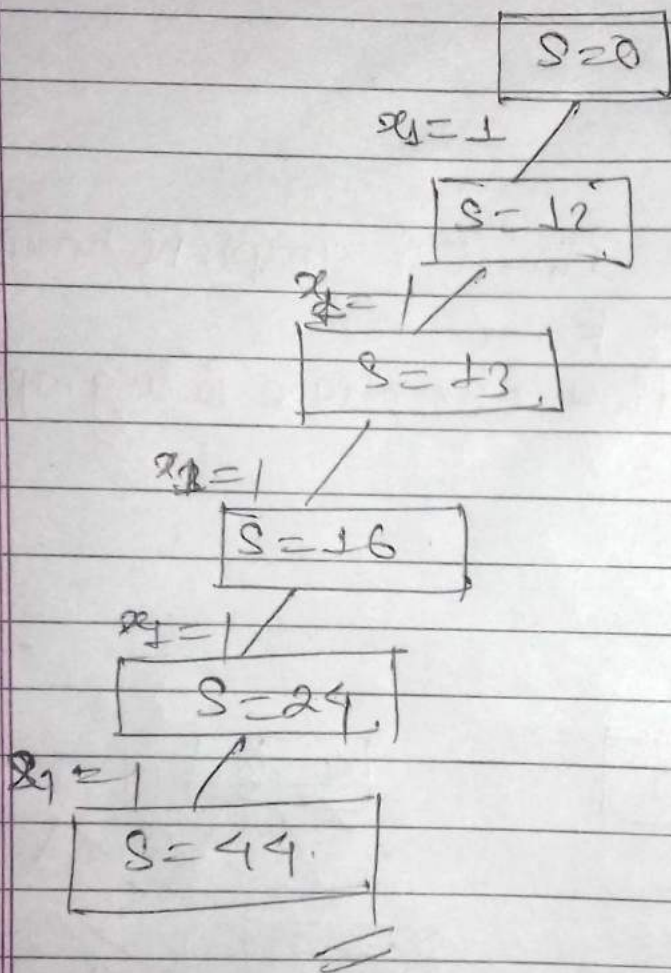 S=0
x1=1
S=12
x=1
S=13
x=1
S=16
x1=1
S=24
x1=1
S=44